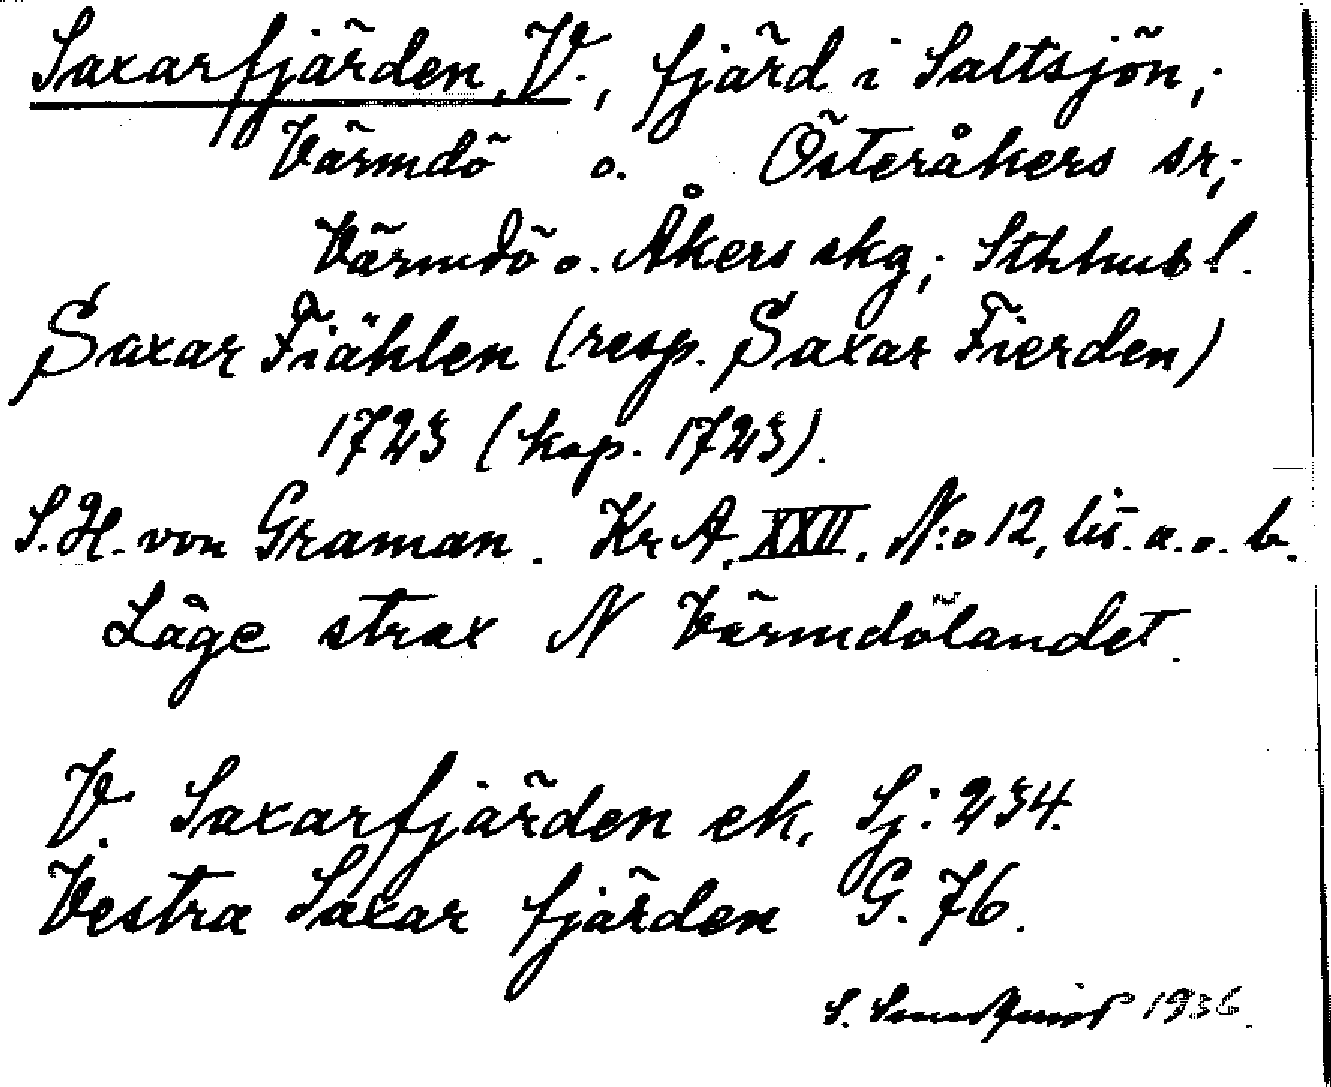 Saxarfjärden, V., fjärd i Saltsjön;
Värmdö o. Österåkers sr;
Värmdö o. Åkers skg; Sthlms l.
Saxar Fiählen (resp. Saxar Fierden)
1723 (kop. 1723).
S.H. von Graman. KrA, XXII, N:o 12, lit. a. o. b.
Läge strax N Värmdölandet.
V. Saxarfjärden ek. Sj: 234.
Vestra Saxar fjärden G. 76.
S. Sundquist 1936.